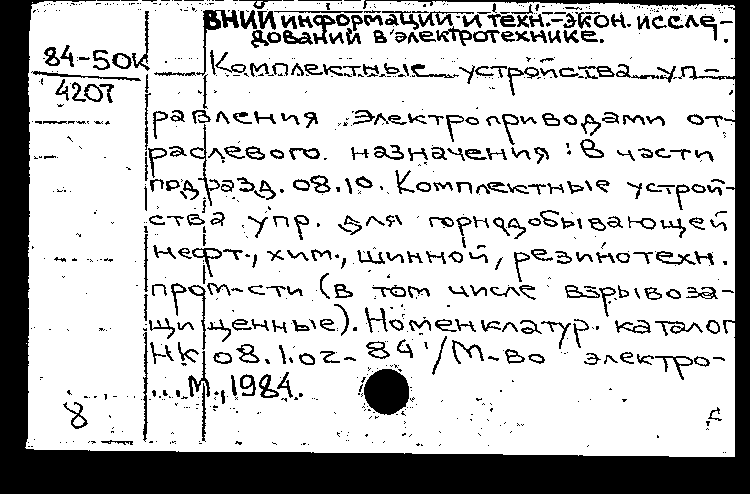 ВНИИ информации и техн.-экон. иссле-
дований в электротехнике.
84-50К
4207
Комплектные устройства уп-
равления электроприводами от-
раслевого назначения: В части
подразд. 08.10. Комплектные устрой-
ства упр. для горнодобывающей
нефт., хим., шинной, резинотехн.
пром-сти (в том числе взрывоза-
щищенные). Номенклатур. каталог
НК 08.1.02-84 / М-во электро-
...М., 1984.
8